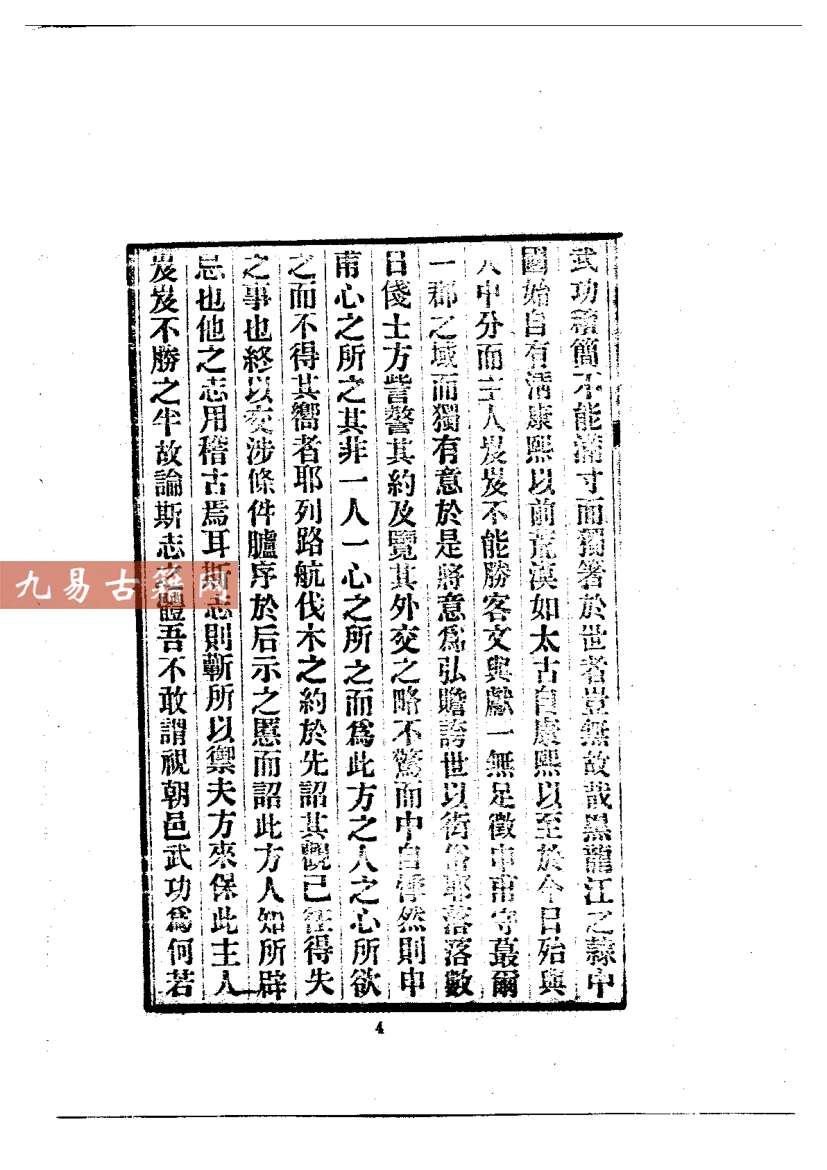 武功續簡不能滿寸而獨箸於世者豈無故哉黑龍江之隸中
國始自有清康熙以前荒漠如太古自康熙以至於今日殆與
人中分而主人岌岌不能勝客文與獻一無足徵申甫守蕞爾
一郡之域而獨有意於是將意爲弘贍誇世以街俗耶落落數
日俴士方訾謷其約及覽其外交之略不驚而中自懾然則申
甫心之所之其非一人一心之所之而爲此方之人之心所欲
之而不得其嚮者耶列路航伐木之約於先詔其觀已往得失
之事也終以交涉條件臚序於后示之慝而詔此方人知所辟
忌也他之志用稽古焉耳斯志則蘄所以禦夫方來保此主人
岌岌不勝之半故論斯志之體吾不敢謂視朝邑武功爲何若
4
九易古籍网